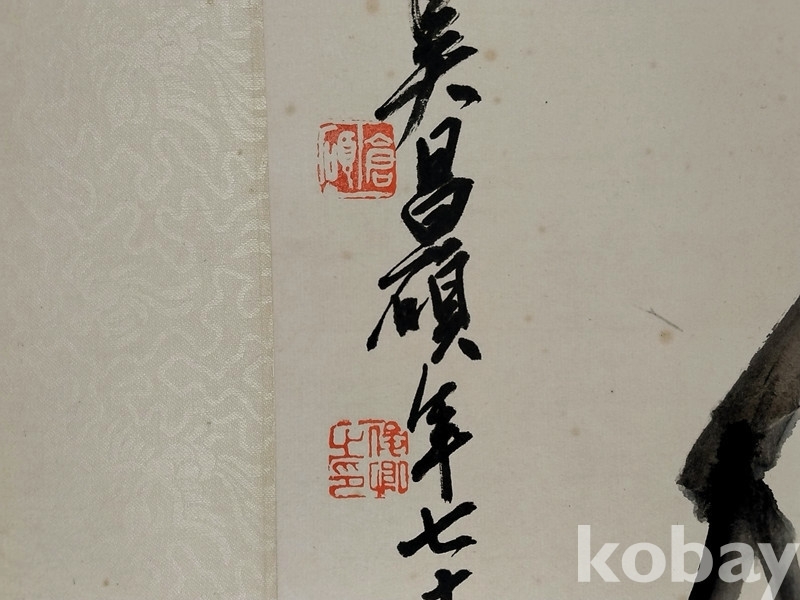 吳昌碩年七十
倉碩
俊卿之印
kobay